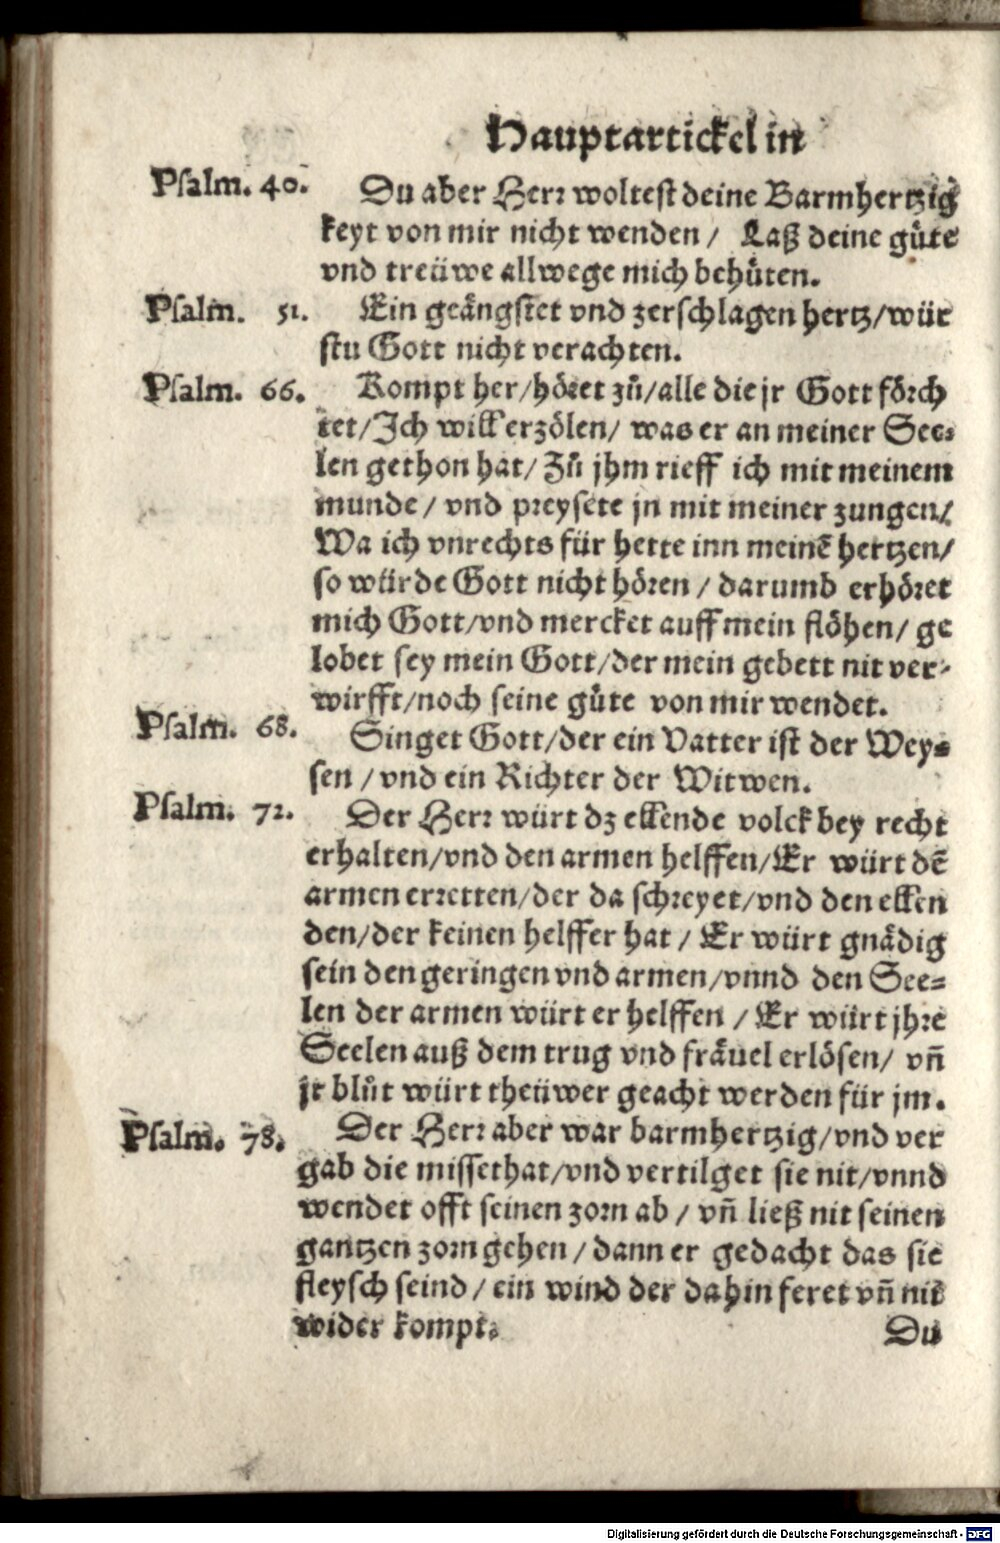 Hauptartickel in
Psalm. 40. Du aber Herr woltest deine Barmhertzig
keyt von mir nicht wenden / Laß deine gůte
vnd treüwe allwege mich behůten.
Psalm. 51. Ein geängstet vnd zerschlagen hertz/wür
stu Gott nicht verachten.
Psalm. 66. Kompt her/höret zů/alle die jr Gott förch
tet/Ich will erzölen/ was er an meiner See-
len gethon hat/ Zů jhm rieff ich mit meinem
munde / vnd preysete jn mit meiner zungen/
Wa ich vnrechts für hette inn meinē hertzen/
so würde Gott nicht hören / darumb erhöret
mich Gott/vnd mercket auff mein flöhen/ ge
lobet sey mein Gott/der mein gebett nit ver-
wirfft/noch seine gůte von mir wendet.
Psalm. 68. Singet Gott/der ein Vatter ist der Wey-
sen / vnd ein Richter der Witwen.
Psalm. 72. Der Herr würt dz ellende volck bey recht
erhalten/vnd den armen helffen/Er würt dē
armen erretten/der da schreyet/vnd den ellen
den/der keinen helffer hat / Er würt gnädig
sein den geringen vnd armen/vnnd den See-
len der armen würt er helffen / Er würt jhre
Seelen auß dem trug vnd fräuel erlösen/ vñ
jr blůt würt theüwer geacht werden für jm.
Psalm. 78. Der Herr aber war barmhertzig/vnd ver
gab die missethat/vnd vertilget sie nit/vnnd
wendet offt seinen zorn ab / vñ ließ nit seinen
gantzen zorn gehen / dann er gedacht das sie
fleysch seind / ein wind der dahin feret vñ nit
wider kompt.
Du
Digitalisierung gefördert durch die Deutsche Forschungsgemeinschaft - DFG